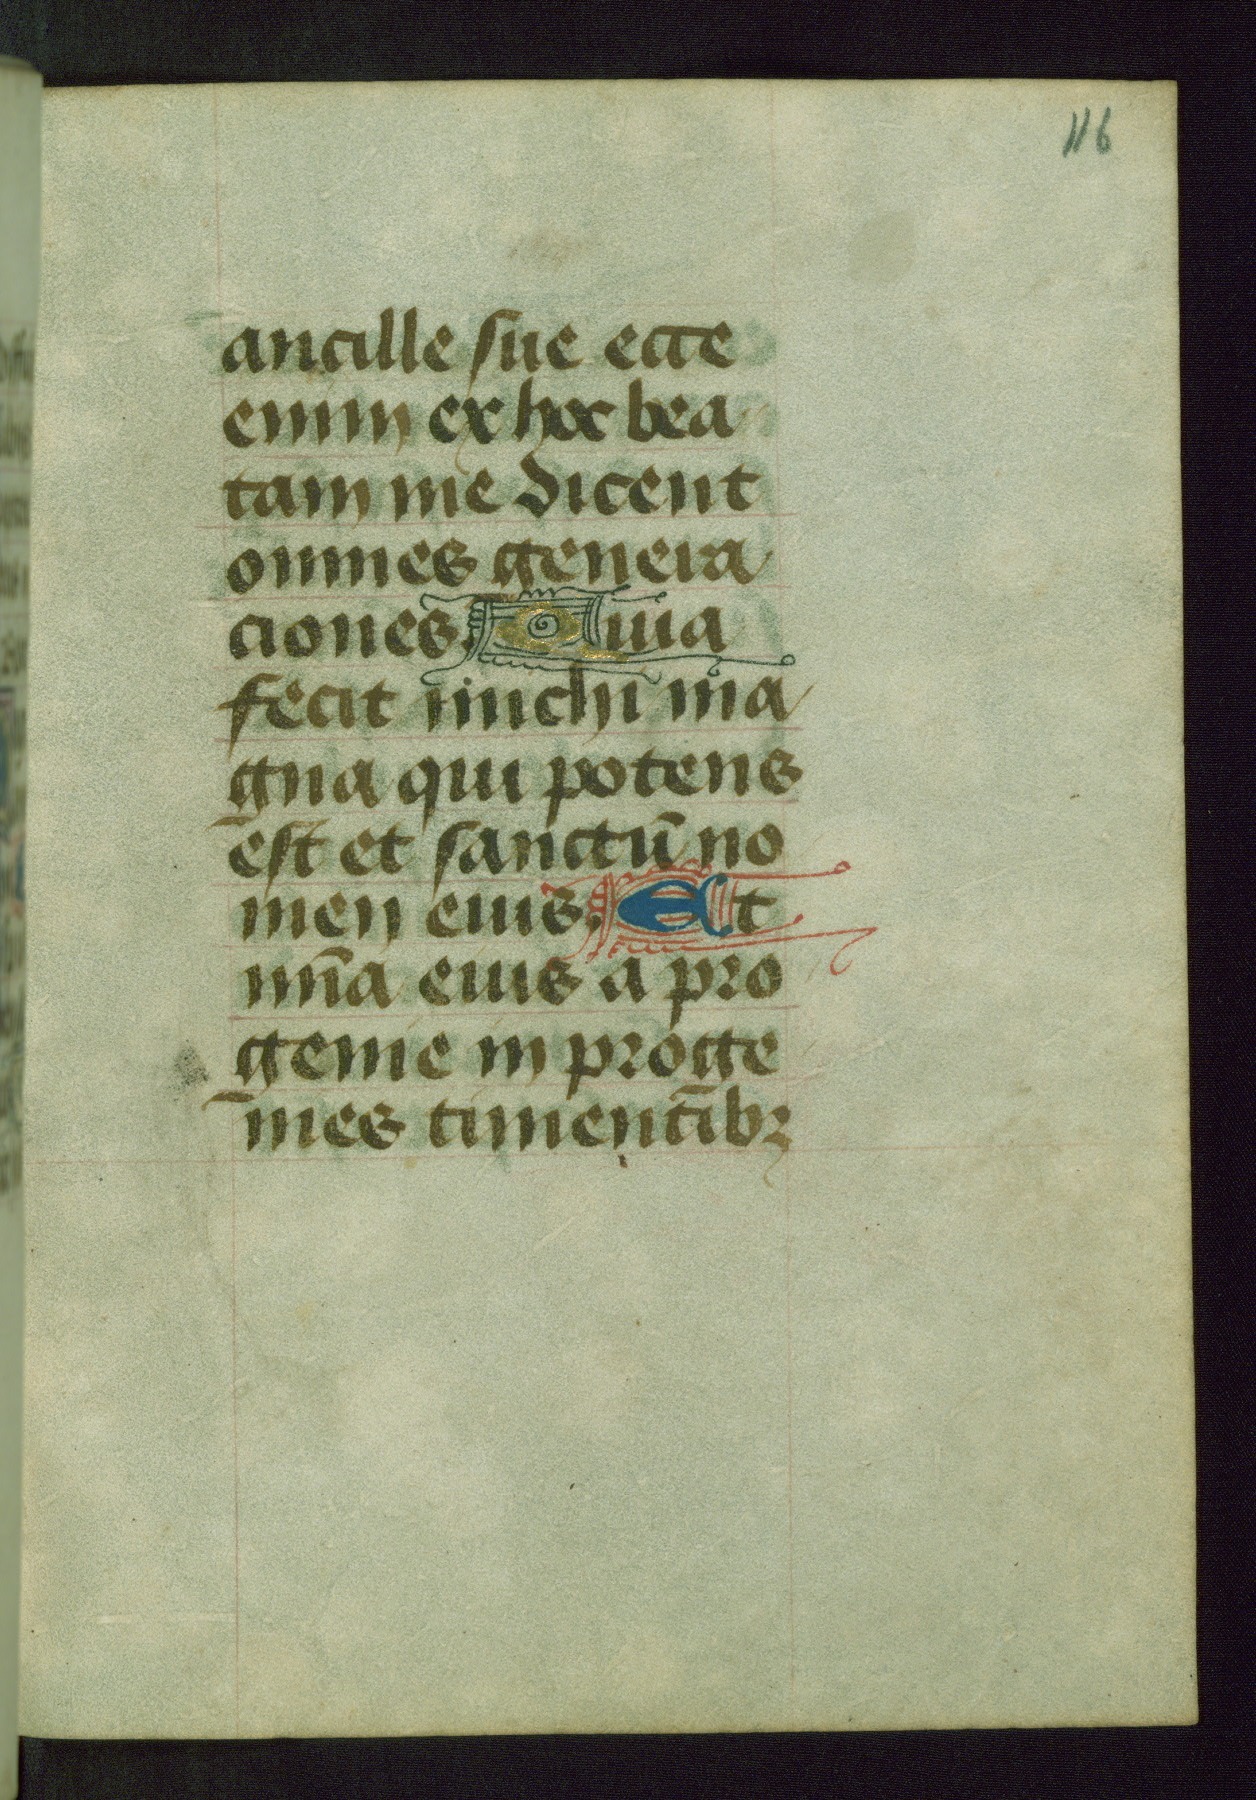 116
ancille sue ecce
enim ex hoc bea
tam me dicent
omnes genera
ciones. Quia
fecit michi ma
gna qui potens
est et sanctũ no
men eius. Et
mĩa eius a pro
genie in proge
nies timentibꝫ